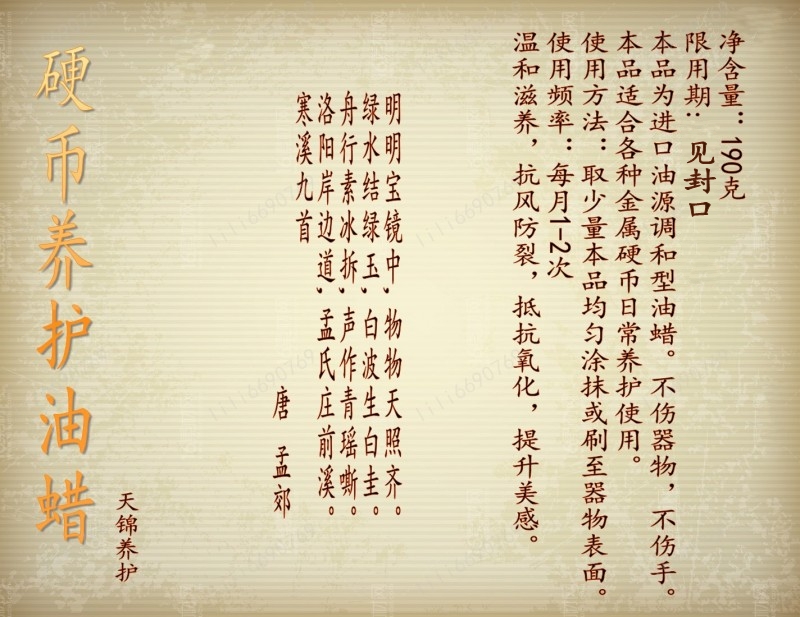 净含量：190克
限用期：见封口
本品为进口油源调和型油蜡。不伤器物，不伤手。
本品适合各种金属硬币日常养护使用。
使用方法：取少量本品均匀涂抹或刷至器物表面。
使用频率：每月1-2次
温和滋养，抗风防裂，抵抗氧化，提升美感。
明明宝镜中，物物天照齐。
绿水结绿玉，白波生白圭。
舟行素冰拆，声作青瑶嘶。
洛阳岸边道，孟氏庄前溪。
寒溪九首
唐 孟郊
天锦养护
硬币养护油蜡